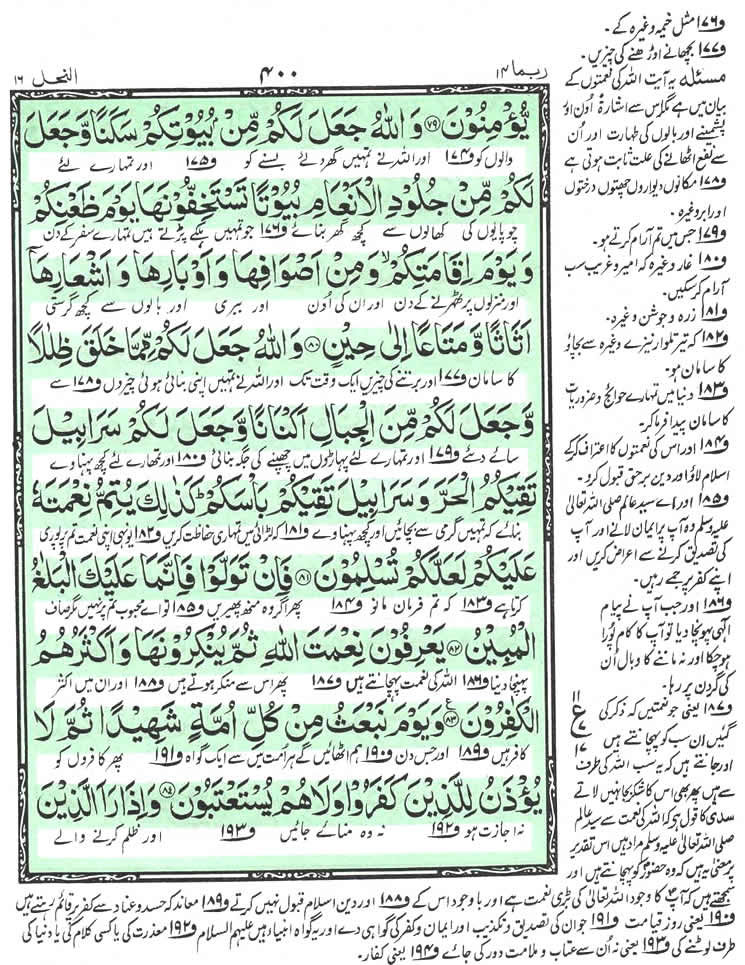 ربما ۱۴
۴۰۰
النحل ۱۶
یُؤْمِنُوْنَ ﴿۷۹﴾ وَ اللّٰهُ جَعَلَ لَكُمْ مِّنْۢ بُیُوْتِكُمْ سَكَنًا وَّ جَعَلَ
والوں کو و۱۷۴ اور اللہ نے تمہیں گھر دئے بسنے کو و۱۷۵ اور تمہارے لئے
لَكُمْ مِّنْ جُلُوْدِ الْاَنْعَامِ بُیُوْتًا تَسْتَخِفُّوْنَهَا یَوْمَ ظَعْنِكُمْ
چوپایوں کی کھالوں سے کچھ گھر بنائے و۱۷۶ جو تمہیں ہلکے پڑتے ہیں تمہارے سفر کے دن
وَ یَوْمَ اِقَامَتِكُمْ ۙ وَ مِنْ اَصْوَافِهَا وَ اَوْبَارِهَا وَ اَشْعَارِهَاۤ
اور منزلوں پر ٹھہرنے کے دن اور ان کی اُون اور ببری اور بالوں سے کچھ گرستی
اَثَاثًا وَّ مَتَاعًا اِلٰى حِیْنٍ ﴿۸۰﴾ وَ اللّٰهُ جَعَلَ لَكُمْ مِّمَّا خَلَقَ ظِلٰلًا
کا سامان و۱۷۷ اور برتنے کی چیزیں ایک وقت تک اور اللہ نے تمہیں اپنی بنائی ہوئی چیزوں و۱۷۸ سے
وَّ جَعَلَ لَكُمْ مِّنَ الْجِبَالِ اَكْنَانًا وَّ جَعَلَ لَكُمْ سَرَابِیْلَ
سائے دئے و۱۷۹ اور تمہارے لئے پہاڑوں میں چھپنے کی جگہ بنائی و۱۸۰ اور تمہارے لئے کچھ پہناوے
تَقِیْكُمُ الْحَرَّ وَ سَرَابِیْلَ تَقِیْكُمْ بَاْسَكُمْ ؕ كَذٰلِكَ یُتِمُّ نِعْمَتَهٗ
بنائے کہ تمہیں گرمی سے بچائیں اور کچھ پہناوے و۱۸۱ کہ لڑائی میں تمہاری حفاظت کریں و۱۸۲ یونہی اپنی نعمت تم پر پوری
عَلَیْكُمْ لَعَلَّكُمْ تُسْلِمُوْنَ ﴿۸۱﴾ فَاِنْ تَوَلَّوْا فَاِنَّمَا عَلَیْكَ الْبَلٰغُ
کرتا ہے و۱۸۳ کہ تم فرمان مانو و۱۸۴ پھر اگر وہ منھ پھیریں و۱۸۵ تو اے محبوب تم پر نہیں مگر صاف
الْمُبِیْنُ ﴿۸۲﴾ یَعْرِفُوْنَ نِعْمَتَ اللّٰهِ ثُمَّ یُنْكِرُوْنَهَا وَ اَكْثَرُهُمُ
پہنچا دینا و۱۸۶ اللہ کی نعمت پہچانتے ہیں و۱۸۷ پھر اس سے منکر ہوتے ہیں و۱۸۸ اور ان میں اکثر
الْكٰفِرُوْنَ ﴿۸۳﴾ وَ یَوْمَ نَبْعَثُ مِنْ كُلِّ اُمَّةٍ شَهِیْدًا ثُمَّ لَا
کافر ہیں و۱۸۹ اور جس دن و۱۹۰ ہم اٹھائیں گے ہر امت میں سے ایک گواہ و۱۹۱ پھر کافروں کو
یُؤْذَنُ لِلَّذِیْنَ كَفَرُوْا وَ لَا هُمْ یُسْتَعْتَبُوْنَ ﴿۸۴﴾ وَ اِذَا رَاَ الَّذِیْنَ
نہ اجازت ہو و۱۹۲ نہ وہ منائے جائیں و۱۹۳ اور ظلم کرنے والے
و۱۷۶ مثل خیمہ وغیرہ کے۔
و۱۷۷ بچھانے اوڑھنے کی چیزیں۔
مسئلہ یہ آیت اللہ کی نعمتوں کے
بیان میں ہے مگر اس سے اشارۃً اُون اور
پشمینے اور بالوں کی طہارت اور اُن
سے نفع اٹھانے کی حلّت ثابت ہوتی ہے
و۱۷۸ مکانوں دیواروں چھتوں درختوں
اور ابر وغیرہ۔
و۱۷۹ جس میں تم آرام کرتے ہو۔
و۱۸۰ غار وغیرہ کہ امیر و غریب سب
آرام کر سکیں۔
و۱۸۱ زرہ و جوشن وغیرہ۔
و۱۸۲ کہ تیر تلوار نیزے وغیرہ سے بچاؤ
کا سامان ہو۔
و۱۸۳ دنیا میں تمہارے حوائج و ضروریات
کا سامان پیدا فرما کر۔
و۱۸۴ اور اس کی نعمتوں کا اعتراف کرکے
اسلام لاؤ اور دین برحق قبول کرو۔
و۱۸۵ اور اے سید عالم صلی اللہ تعالیٰ
علیہ وسلم وہ آپ پر ایمان لانے اور آپ
کی تصدیق کرنے سے اعراض کریں اور
اپنے کفر پر جمے رہیں۔
و۱۸۶ اور جب آپ نے پیام
الٰہی پہونچا دیا تو آپ کا کام پُورا
ہو چکا اور نہ ماننے کا وبال اُن
کی گردن پر رہا۔
و۱۸۷ یعنی جو نعمتیں کہ ذکر کی
گئیں ان سب کو پہچانتے ہیں
اور جانتے ہیں کہ یہ سب اللہ کی طرف
سے ہیں پھر بھی اس کا شکر بجا نہیں لاتے
سدی کا قول ہے کہ اللہ کی نعمت سے سید عالم
صلی اللہ تعالیٰ علیہ وسلم مراد ہیں اس تقدیر
پر معنی یہ ہیں کہ وہ حضور کو پہچانتے ہیں اور
۱۱
ع
۷
۱۷
سمجھتے ہیں کہ آپ کا وجود اللہ تعالیٰ کی بڑی نعمت ہے اور باوجود اس کے و۱۸۸ اور دین اسلام قبول نہیں کرتے و۱۸۹ معاند کہ حسد و عناد سے کفر پر قائم رہتے ہیں
و۱۹۰ یعنی روز قیامت و۱۹۱ جو ان کی تصدیق و تکذیب اور ایمان و کفر کی گواہی دے اور یہ گواہ انبیاء ہیں علیہم السلام و۱۹۲ معذرت کی یا کسی کلام کی یا دنیا کی
طرف لوٹنے کی و۱۹۳ یعنی نہ اُن سے عتاب و ملامت دور کی جائے و۱۹۴ یعنی کفار۔